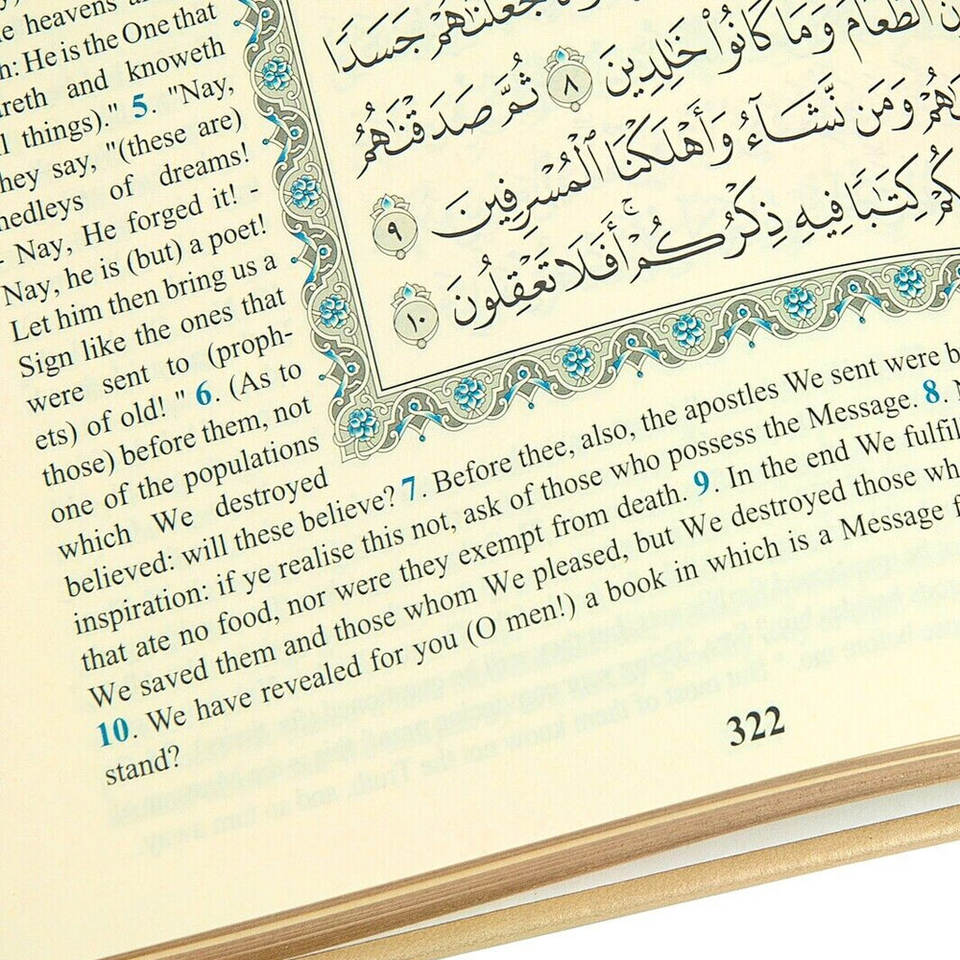 heavens
He is the One that
and knoweth
things)." 5. "Nay,
say, "(these are)
of dreams!
- Nay, He forged it! -
Nay, he is (but) a poet!
Let him then bring us a
Sign like the ones that
were sent to (proph-
ets) of old! " 6. (As to
those) before them, not
one of the populations
which We destroyed
believed: will these believe? 7. Before thee, also, the apostles We sent were
inspiration: if ye realise this not, ask of those who possess the Message. 8.
that ate no food, nor were they exempt from death. 9. In the end We
We saved them and those whom We pleased, but We destroyed those
10. We have revealed for you (O men!) a book in which is a Message
stand?
جَعَلْنَٰهُمْ جَسَدًا
ٱلطَّعَامَ وَمَا كَانُوا۟ خَٰلِدِينَ ٨ ثُمَّ صَدَقْنَٰهُمُ
وَمَن نَّشَآءُ وَأَهْلَكْنَا ٱلْمُسْرِفِينَ ٩
كِتَٰبًا فِيهِ ذِكْرُكُمْ ۖ أَفَلَا تَعْقِلُونَ ١٠
322